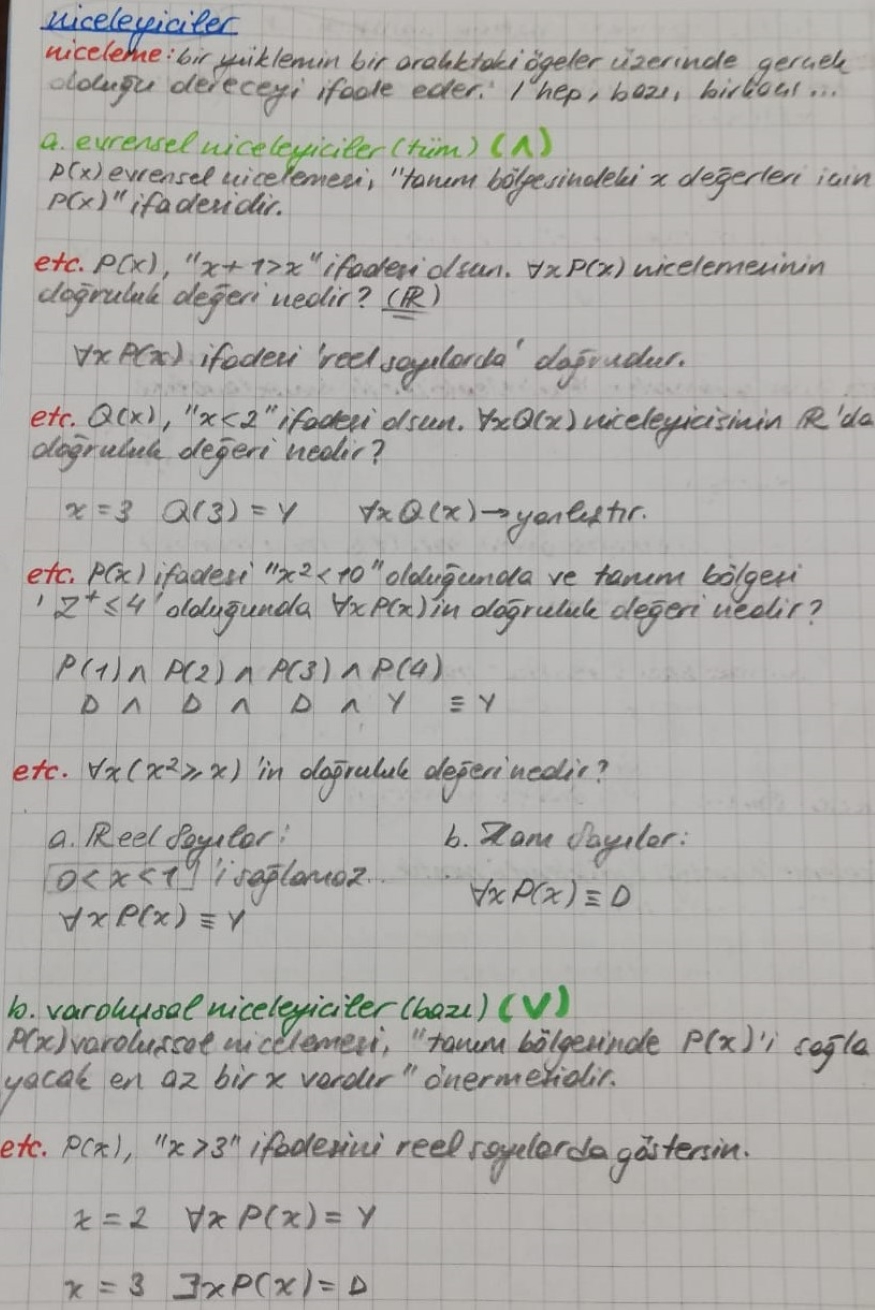 niceleyiciler
niceleme: bir yüklemin bir aralıktaki ögeler üzerinde gerçek
olduğu dereceyi ifade eder. / hep, bazı, birkaçı...
a. evrensel niceleyiciler (tüm) (∧)
P(x) evrensel nicelemesi, "tanım bölgesindeki x değerleri için
P(x)" ifadesidir.
etc. P(x), "x+1>x" ifadesi olsun. ∀xP(x) nicelemesinin
doğruluk değeri nedir? (ℝ)
∀xP(x) ifadesi 'reel sayılarda' doğrudur.
etc. Q(x), "x<2" ifadesi olsun. ∀xQ(x) niceleyicisinin ℝ'da
doğruluk değeri nedir?
x = 3 Q(3) = Y ∀xQ(x) → yanlıştır.
etc. P(x) ifadesi "x²<10" olduğunda ve tanım bölgesi
'Z⁺≤4' olduğunda ∀xP(x) in doğruluk değeri nedir?
P(1) ∧ P(2) ∧ P(3) ∧ P(4)
D ∧ D ∧ D ∧ Y ≡ Y
etc. ∀x(x²≥x) 'in doğruluk değeri nedir?
a. Reel Sayılar: b. Tam Sayılar:
0<x<1 'i sağlamaz.. ∀xP(x) ≡ D
∀xP(x) ≡ Y
b. varoluşsal niceleyiciler (bazı) (∨)
P(x) varoluşsal nicelemesi, "tanım bölgesinde P(x)'i sağla
yacak en az bir x vardır" önermesidir.
etc. P(x), "x>3" ifadesini reel sayılarda göstersin.
x = 2 ∀xP(x) = Y
x = 3 ∃xP(x) = D